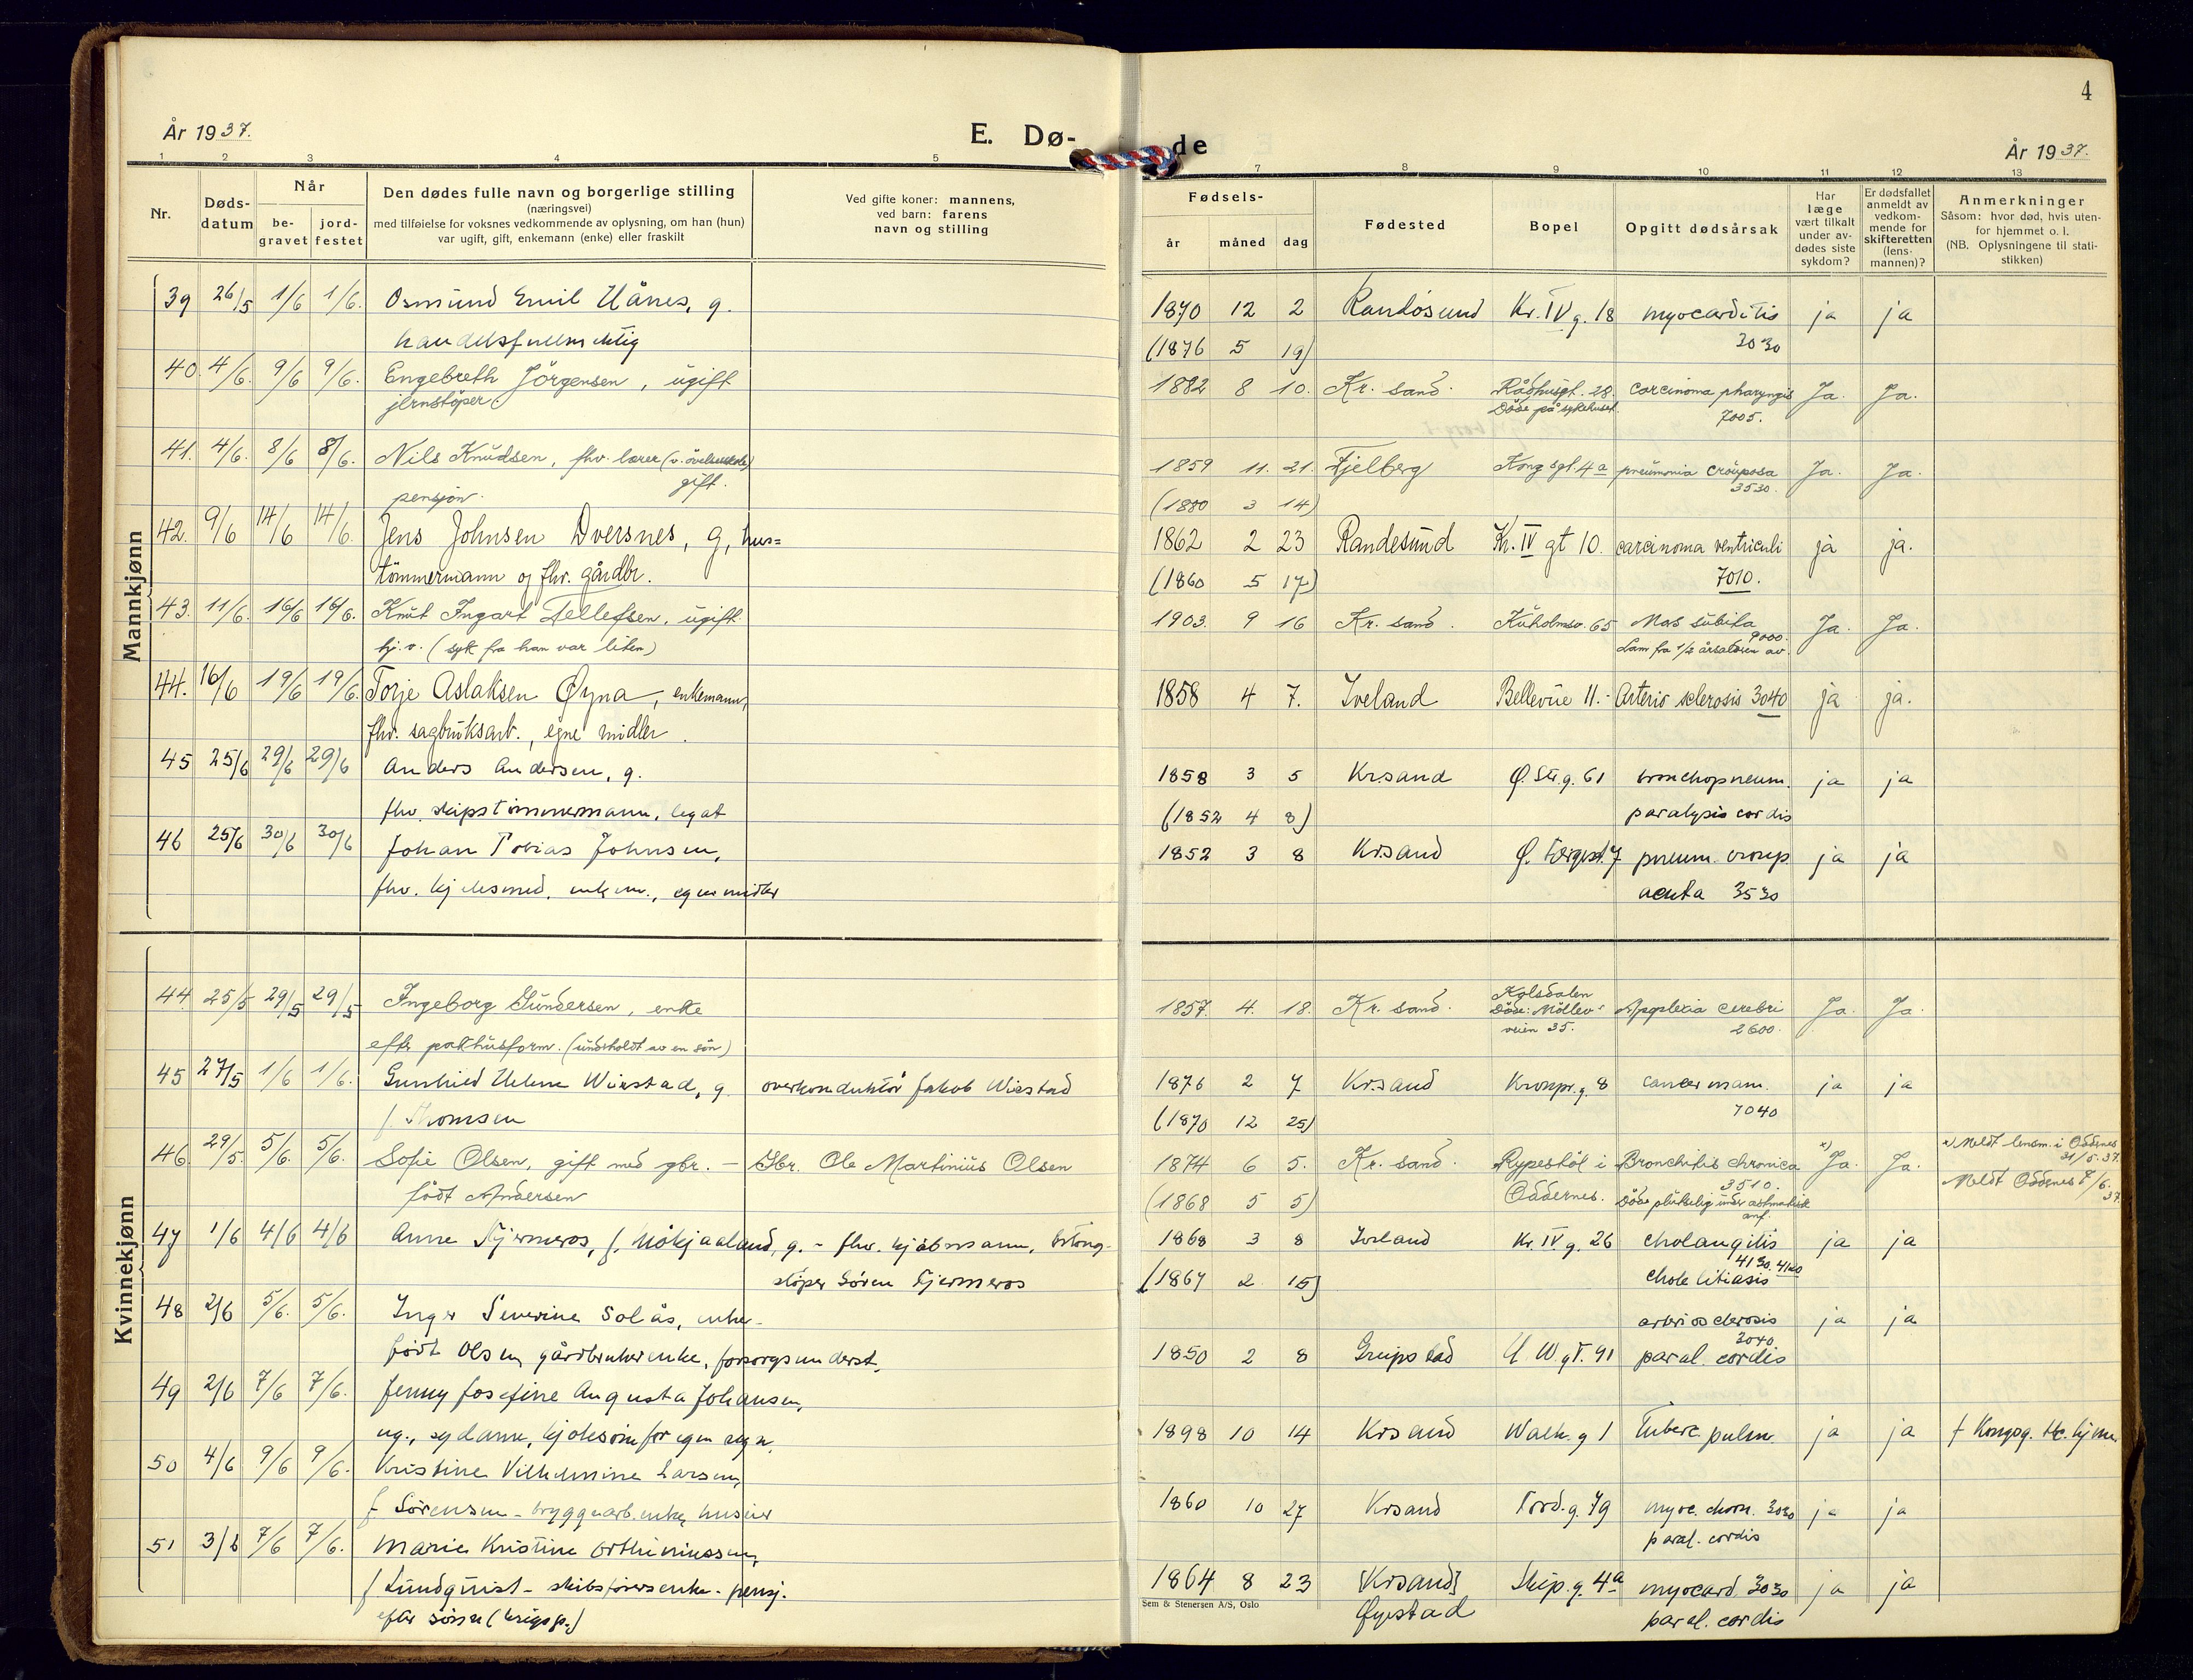 4
År 1937.
E. Dø-
de
År 1937.
1 2 3 4 5 7 8 9 10 11 12 13
Nr.
Døds-
datum
Når
be-
gravet
jord-
festet
Den dødes fulle navn og borgerlige stilling
(næringsvei)
med tilføielse for voksnes vedkommende av oplysning, om han (hun)
var ugift, gift, enkemann (enke) eller fraskilt
Ved gifte koner: mannens,
ved barn: farens
navn og stilling
Fødsels-
år måned dag
Fødested
Bopel
Opgitt dødsårsak
Har
læge
vært tilkalt
under av-
dødes siste
sykdom?
Er dødsfallet
anmeldt av
vedkom-
mende for
skifteretten
(lens-
mannen)?
Anmerkninger
Såsom: hvor død, hvis uten-
for hjemmet o. l.
(NB. Oplysningene til stati-
stikken)
Mannkjønn
39 26/5 1/6 1/6. Osmund Emil Hånes, g. 1870 12 2 Randøsund Kr. IV g. 18 myocarditis ja ja
handelsfullmektig (1876 5 19) 3030
40. 4/6. 9/6 9/6. Engebreth Jörgensen, ugift 1882 8 10. Kr. sand. Rådhusgt. 28. carcinoma pharyngis Ja. Ja.
jernstöper. Döde på sykehuset. 7005.
41. 4/6. 8/6 8/6. Nils Knudsen, fhv. lærer 1859 11. 21. Fjelberg Kongsgt. 4a pneumonia crouposa Ja. Ja.
gift. 3530.
pensjon. (1880 3 14)
42. 9/6 14/6 14/6. Jens Johnsen Dversnes, g, hus= 1862 2 23 Randesund Kr. IV gt 10. carcinoma ventriculi ja ja.
tømmermann og fhv. gårdbr. (1860 5 17) 7010.
43. 11/6. 16/6 16/6. Knut Ingart Tellefsen, ugift. 1903. 9 16 Kr. sand. Kuholmsv. 65 Mors subita Ja. Ja.
9000.
hj. v. (syk fra han var liten) Lam fra 1/2 årsalderen av.
44. 16/6 19/6 19/6. Torje Aslaksen Øyna, enkemann, 1858 4 7. Iveland Bellevue 11.- Arterio sclerosis 3040 ja ja.
fhv. sagbruksarb., egne midler.
45 25/6 29/6 29/6 Anders Andersen, g. 1858 3 5 Krsand Ø. Str.g. 61 bronchopneum. ja ja
fhv. skipstømmermann, legat (1852 4 8) paralysis cordis
46 25/6 30/6 30/6 Johan Tobias Johnsen, 1852 3 8 Krsand pneum. croup ja ja
fhv. kjelesmed, enkem., egne midler acuta 3530
Kvinnekjønn
44. 25/5 29/5 29/5 Ingeborg Gundersen, enke 1857. 4. 18. Kr. sand. Kolsdalen Apoplexia cerebri Ja. Ja.
Döde: Möllev-
veien 35. 2600.
efter pakhusform. (underholdt av en sön)
45 27/5 1/6 1/6. Gunhild Helene Wirstad, g. overkonduktör Jakob Wirstad 1876 2 7 Krsand Kronpr.g. 8 cancer mam. ja ja
f. Thomsen (1870 12 25) 7040
46. 29/5. 5/6. 5/6. Sofie Olsen, gift med gbr. - Gbr. Ole Martinius Olsen 1874 6 5. Kr. sand. Rypestöl i Bronchitis chronica Ja. Ja. x) Meldt lensm. i Oddernes
31/5. 37.
födt Andersen (1868 5 5) Oddernes. 3510. Meldt Oddernes 7/6. 37.
Döde plutselig under astmatisk
anf.
47 1/6 4/6 4/6 Anne Kjermeros, g. - fhv. kjöbmann, 1868 3 8 Iveland Kr. IV g. 26 cholangitis ja ja
4130. 4120
støper Sören Kjermeros (1867 2 15) chole litiasis
48 2/6 5/6. 5/6. Inger Severine Solås, enke - arteriosclerosis ja ja
3040
født Olsen, gårdbrukerenke, forsorgsunderst. 1850 2 8 Greipstad Ø. W gt. 91 paral. cordis
49 2/6 7/6 7/6. Jenny Josefine Augusta Johansen,
ug., sydame, kjolesøm for egen regn. 1898 10 14 Krsand Walk. g 1 Tuberc. pulm. ja ja † Kongsg. tbc. hjem
50 4/6 9/6 9/6. Kristine Vilhelmine Larsen,
f Sörensen - bryggearb.enke, 1860 10 27 Krsand Tord.g. 79 myoc. chron. 3030 ja ja
paral. cordis
51 3/6 7/6 7/6. Marie Kristine Orthiniussen,
f Lundquist - skibsførerenke - pensj. 1864 8 23 [Krsand] Skip.g. 4a myocard. 3030 ja ja
efter sönn (krigsp.) Øyestad paral. cordis
Sem & Stenersen A/S, Oslo